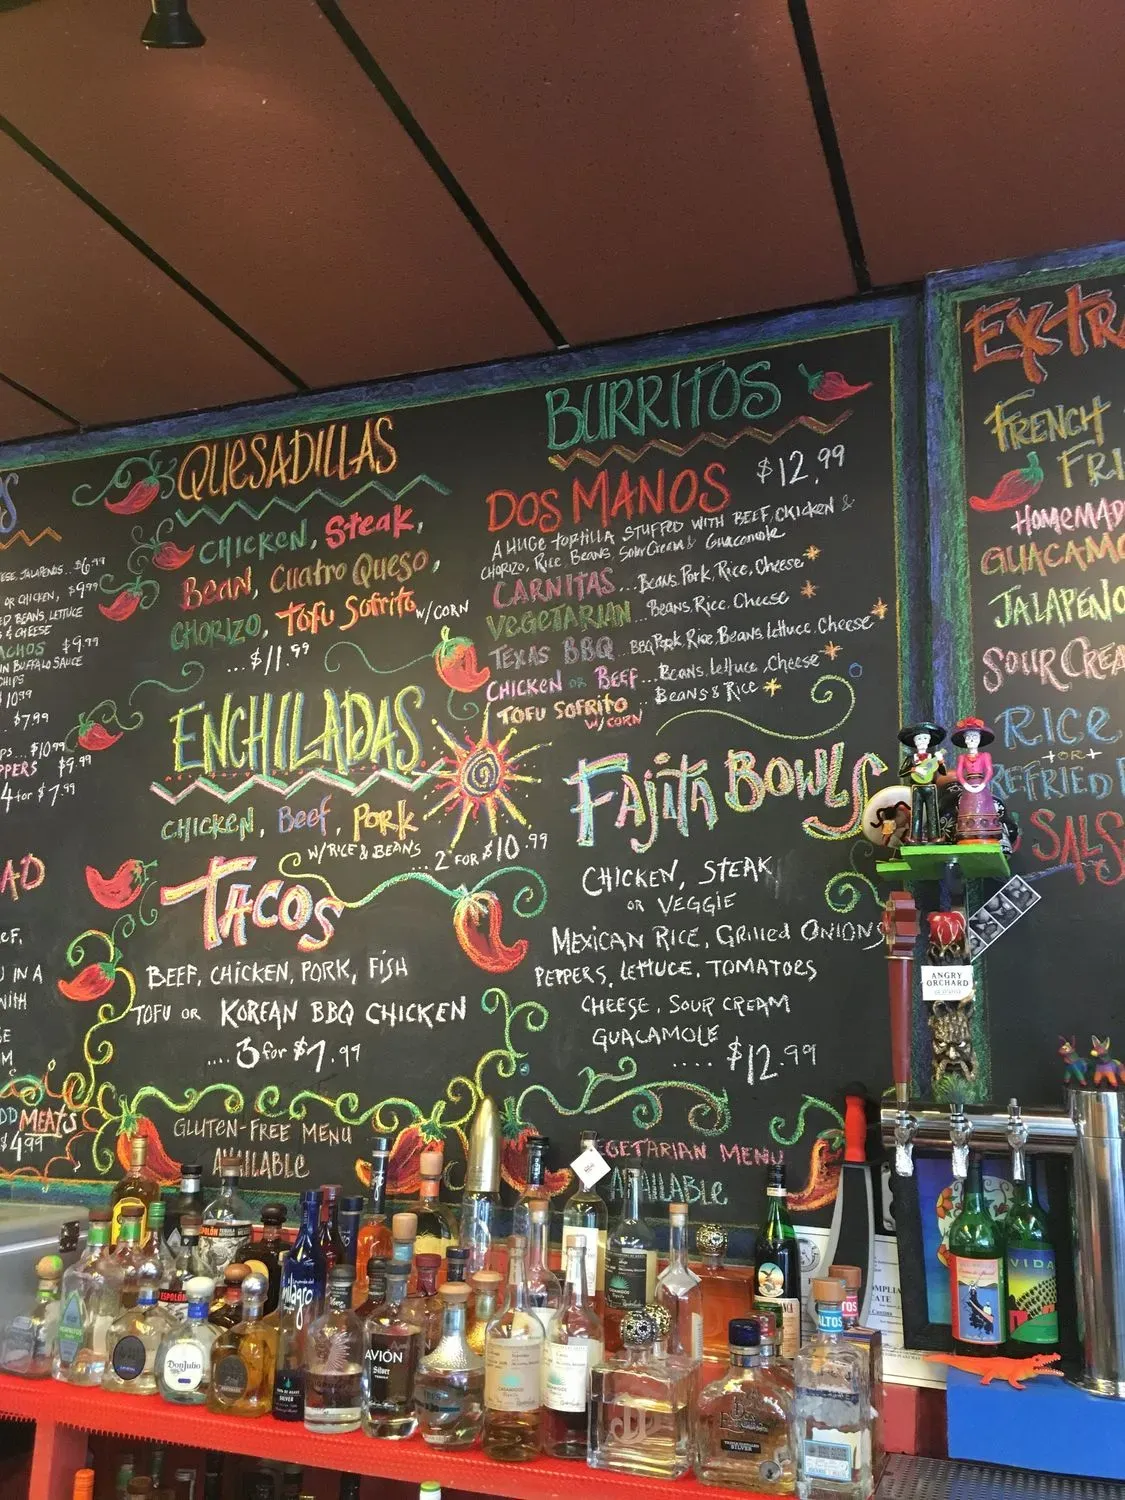 ESE, JALAPENOS... $6.99
OR CHICKEN, $9.99
ED BEANS, LETTUCE
& CHEESE
ACHOS $9.99
IN BUFFALO SAUCE
CHIPS
$10.99
$7.99
PS... $10.99
PPERS $9.99
4 for $7.99
AD
EF,
U IN A
WITH
SE
M
DD MEATS
$4.99
QUESADILLAS
CHICKEN, Steak,
Bean, Cuatro Queso,
CHORIZO, Tofu Sofrito w/CORN
...$11.99
ENCHILADAS
CHICKEN, Beef, Pork
W/RICE & BEANS
...2 FOR $10.99
TACOS
BEEF, CHICKEN, PORK, FISH
TOFU OR KOREAN BBQ CHICKEN
.... 3 for $7.99
GLUTEN-FREE MENU
AVAILABLE
BURRITOS
DOS MANOS $12.99
A HUGE TORTILLA STUFFED WITH BEEF, CHICKEN &
CHORIZO, Rice, Beans, Sour Cream & Guacamole
CARNITAS...Beans, Pork, Rice, Cheese
VEGETARIAN...Beans, Rice, Cheese
TEXAS BBQ...BBQ Pork, Rice, Beans, Lettuce, Cheese
CHICKEN OR BEEF...Beans, Lettuce, Cheese
TOFU SOFRITO W/CORN Beans & Rice
FAJITA BOWLS
CHICKEN, STEAK
OR VEGGIE
MEXICAN RICE, GRILLED ONIONS
PEPPERS, LETTUCE, TOMATOES
CHEESE, SOUR CREAM
GUACAMOLE
.... $12.99
VEGETARIAN MENU
AVAILABLE
EXTRA
FRENCH
FRI
HOMEMAD
GUACAMO
JALAPENO
SOUR CREA
RICE
+OR+
REFRIED B
SALS
ANGRY
ORCHARD
VIDA
ESPOLÓN
ESPOLON
DonJulio
milagro
SILVER
AVIÓN
Silver
CASAMIGOS
SILVER
ALTOS